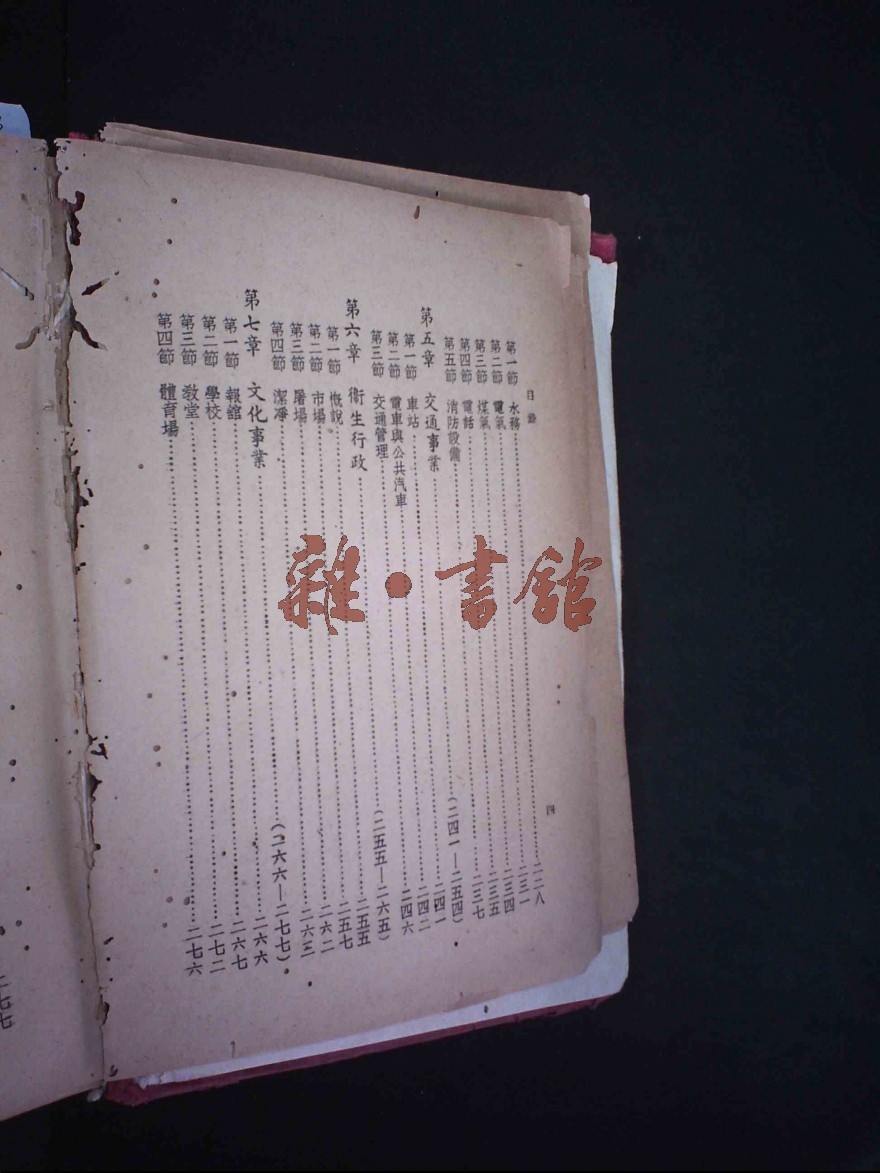 目錄
四
第一節 水務……二二八
第二節 電氣……二三一
第三節 煤氣……二三四
第四節 電話……二三五
第五節 消防設備……二三七
第五章 交通事業……(二四一—二五四)
第一節 車站……二四一
第二節 電車與公共汽車……二四二
第三節 交通管理……二四六
第六章 衞生行政……(二五五—二六五)
第一節 概說……二五五
第二節 市場……二五七
第三節 屠場……二六二
第四節 潔凈……二六三
第七章 文化事業……(二六六—二七七)
第一節 報舘……二六六
第二節 學校……二六七
第三節 敎堂……二七二
第四節 體育場……二七六
雜·書館